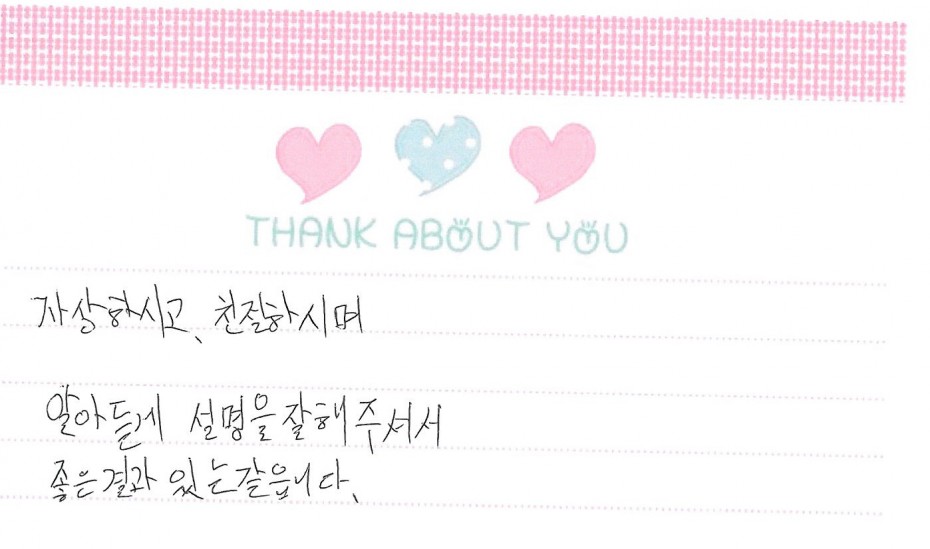 THANK ABOUT YOU
자상하시고, 친절하시며
알아듣게 설명을 잘해 주셔서
좋은결과 있는같읍니다.